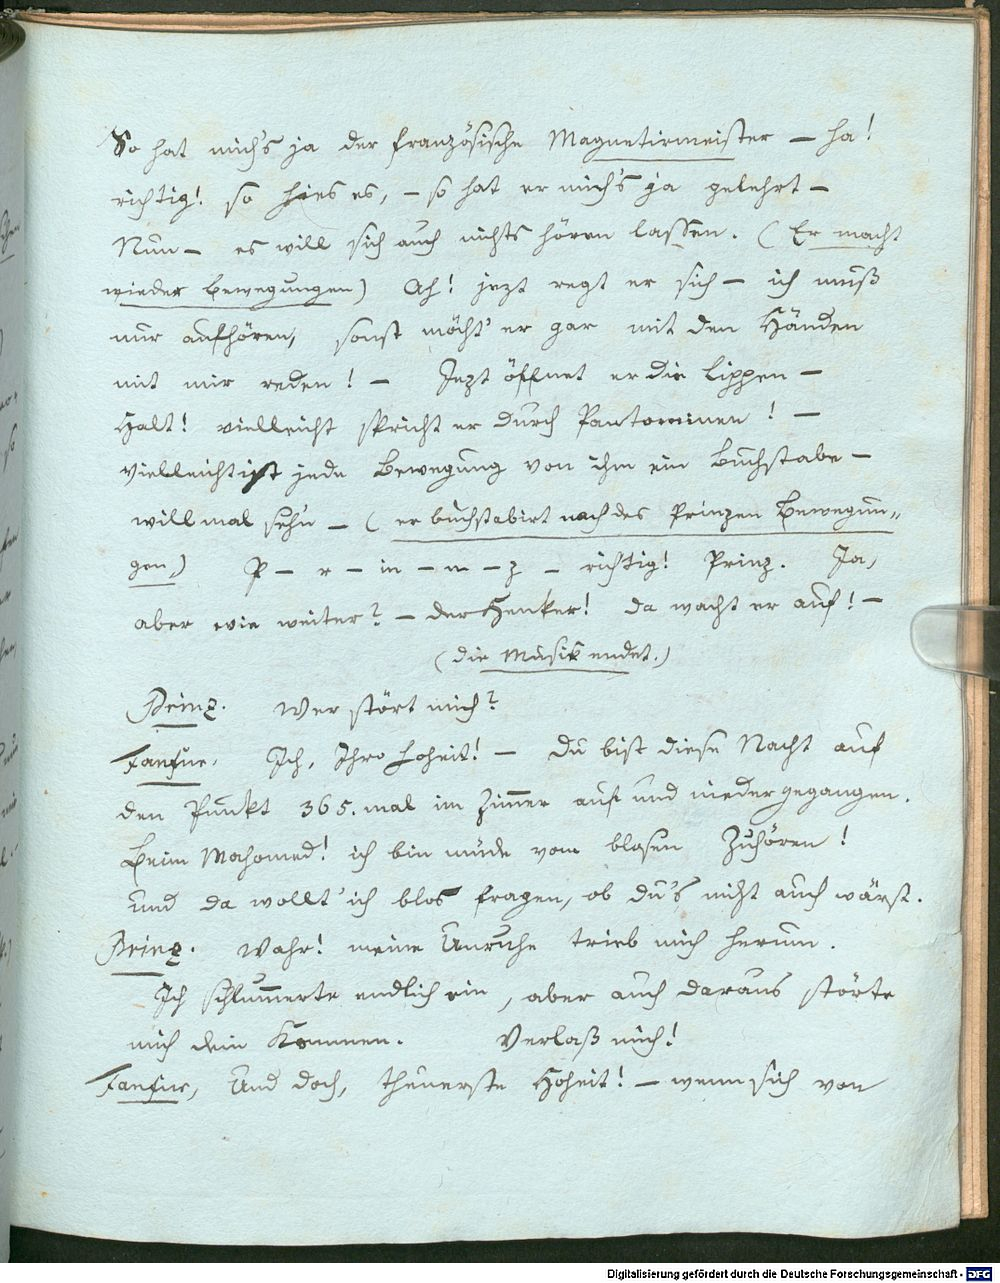 So hat mich's ja der französische Magnetismeister – ha!
richtig! so hies es, – so hat er mich's ja gelehrt –
Nun – es will sich auch nichts hören lassen. (Er macht
wieder Bewegungen) Ah! jezt regt er sich – ich muß
nur aufhören, sonst möcht' er gar mit den Händen
mit mir reden! – Jezt öffnet er die Lippen –
Halt! vielleicht spricht er durch Pantomimen! –
Vielleicht ist jede Bewegung von ihm ein Buchstabe –
will mal seh'n – (er buchstabirt nach des Prinzen Bewegun„
gen) P – r – in – n – z – richtig! Prinz. Ja,
aber wie weiter? – der Henker! da wacht er auf! –
(die Musik endet.)
Prinz. Wer stört mich?
Ich, Ihro Hoheit! – Du bist diese Nacht auf
den Punkt 365. mal im Zim̅er auf und niedergegangen.
Beim Mahomed! ich bin müde vom blosen Zuhören!
und da wollt' ich blos fragen, ob du's nicht auch wärst.
Prinz. Wahr! meine Unruhe trieb mich herum.
Ich schlum̅erte endlich ein, aber auch daraus störte
mich dein Kommen. Verlaß mich!
Und doch, theuerste Hoheit! – wenn sich von
Digitalisierung gefördert durch die Deutsche Forschungsgemeinschaft - DFG